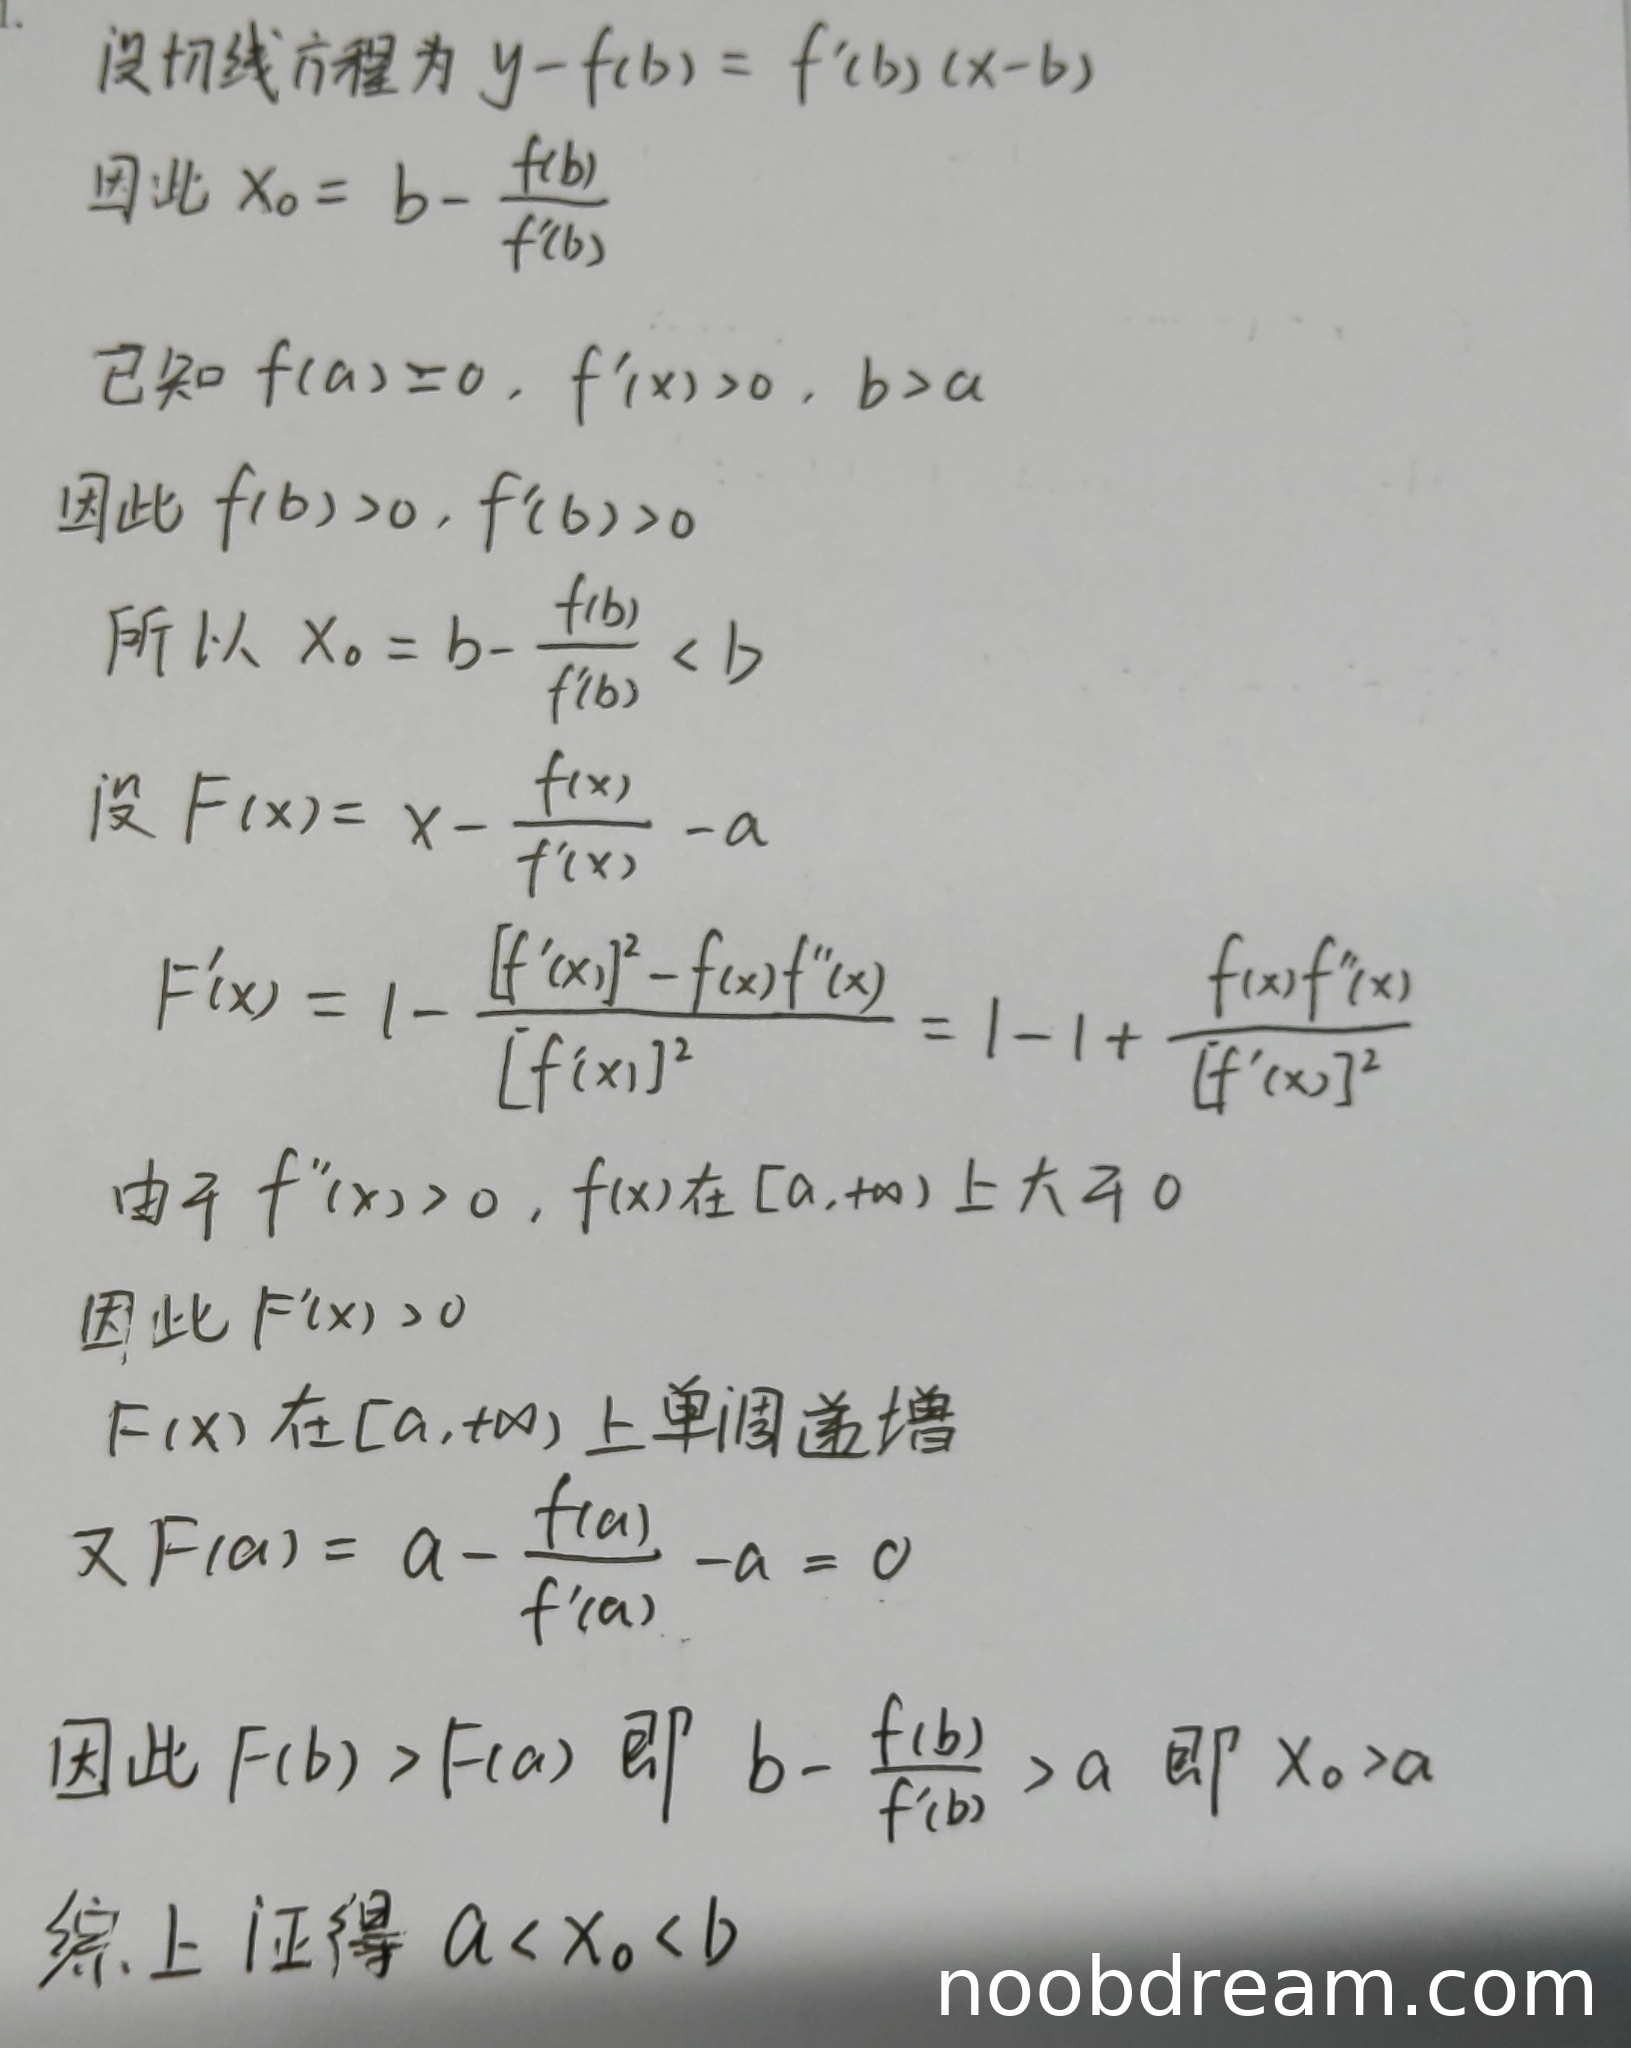 1.
设切线方程为 y-f(b) = f'(b)(x-b)
因此 x₀ = b - f(b)/f'(b)
已知 f(a)=0, f'(x)>0, b>a
因此 f(b)>0, f'(b)>0
所以 x₀ = b - f(b)/f'(b) < b
设 F(x) = x - f(x)/f'(x) - a
F'(x) = 1 - ([f'(x)]² - f(x)f''(x))/[f'(x)]² = 1-1+ f(x)f''(x)/[f'(x)]²
由于 f''(x)>0, f(x)在[a,+∞)上大于0
因此 F'(x)>0
F(x)在[a,+∞)上单调递增
又F(a) = a - f(a)/f'(a) - a = 0
因此 F(b)>F(a) 即 b - f(b)/f'(b) > a 即 x₀>a
综上证得 a<x₀<b
noobdream.com